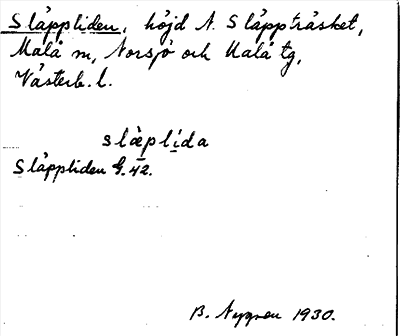 Släppliden, höjd N. Släppträsket,
Malå sn, Norsjö och Malå tg,
Västerb. l.
slæplída
Släppliden G. 42.
B. Nygren 1930.